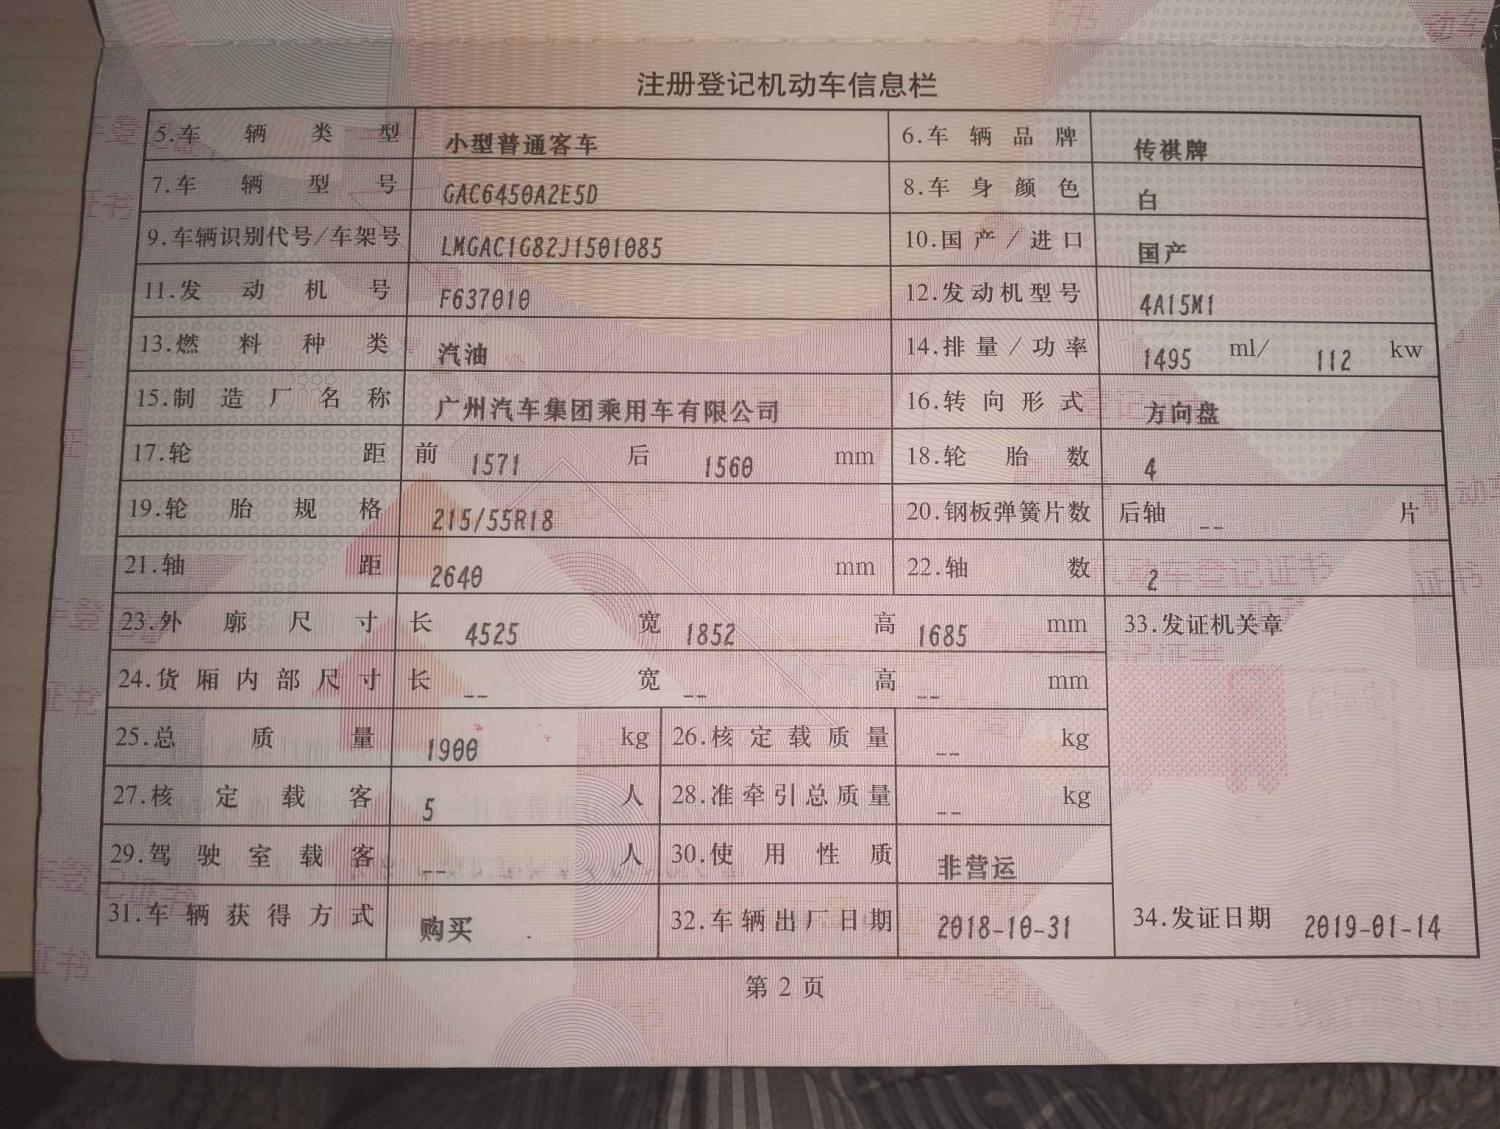 注册登记机动车信息栏
5.车辆类型 小型普通客车 6.车辆品牌 传祺牌
7.车辆型号 GAC6450A2E5D 8.车身颜色 白
9.车辆识别代号/车架号 LMGAC1G82J1501085 10.国产/进口 国产
11.发动机号 F637010 12.发动机型号 4A15M1
13.燃料种类 汽油 14.排量/功率 1495 ml/ 112 kw
15.制造厂名称 广州汽车集团乘用车有限公司 16.转向形式 方向盘
17.轮距 前 1571 后 1560 mm 18.轮胎数 4
19.轮胎规格 215/55R18 20.钢板弹簧片数 后轴 -- 片
21.轴距 2640 mm 22.轴数 2
23.外廓尺寸 长 4525 宽 1852 高 1685 mm 33.发证机关章
24.货厢内部尺寸 长 -- 宽 -- 高 -- mm
25.总质量 1900 kg 26.核定载质量 -- kg
27.核定载客 5 人 28.准牵引总质量 -- kg
29.驾驶室载客 -- 人 30.使用性质 非营运
31.车辆获得方式 购买 32.车辆出厂日期 2018-10-31 34.发证日期 2019-01-14
第 2 页